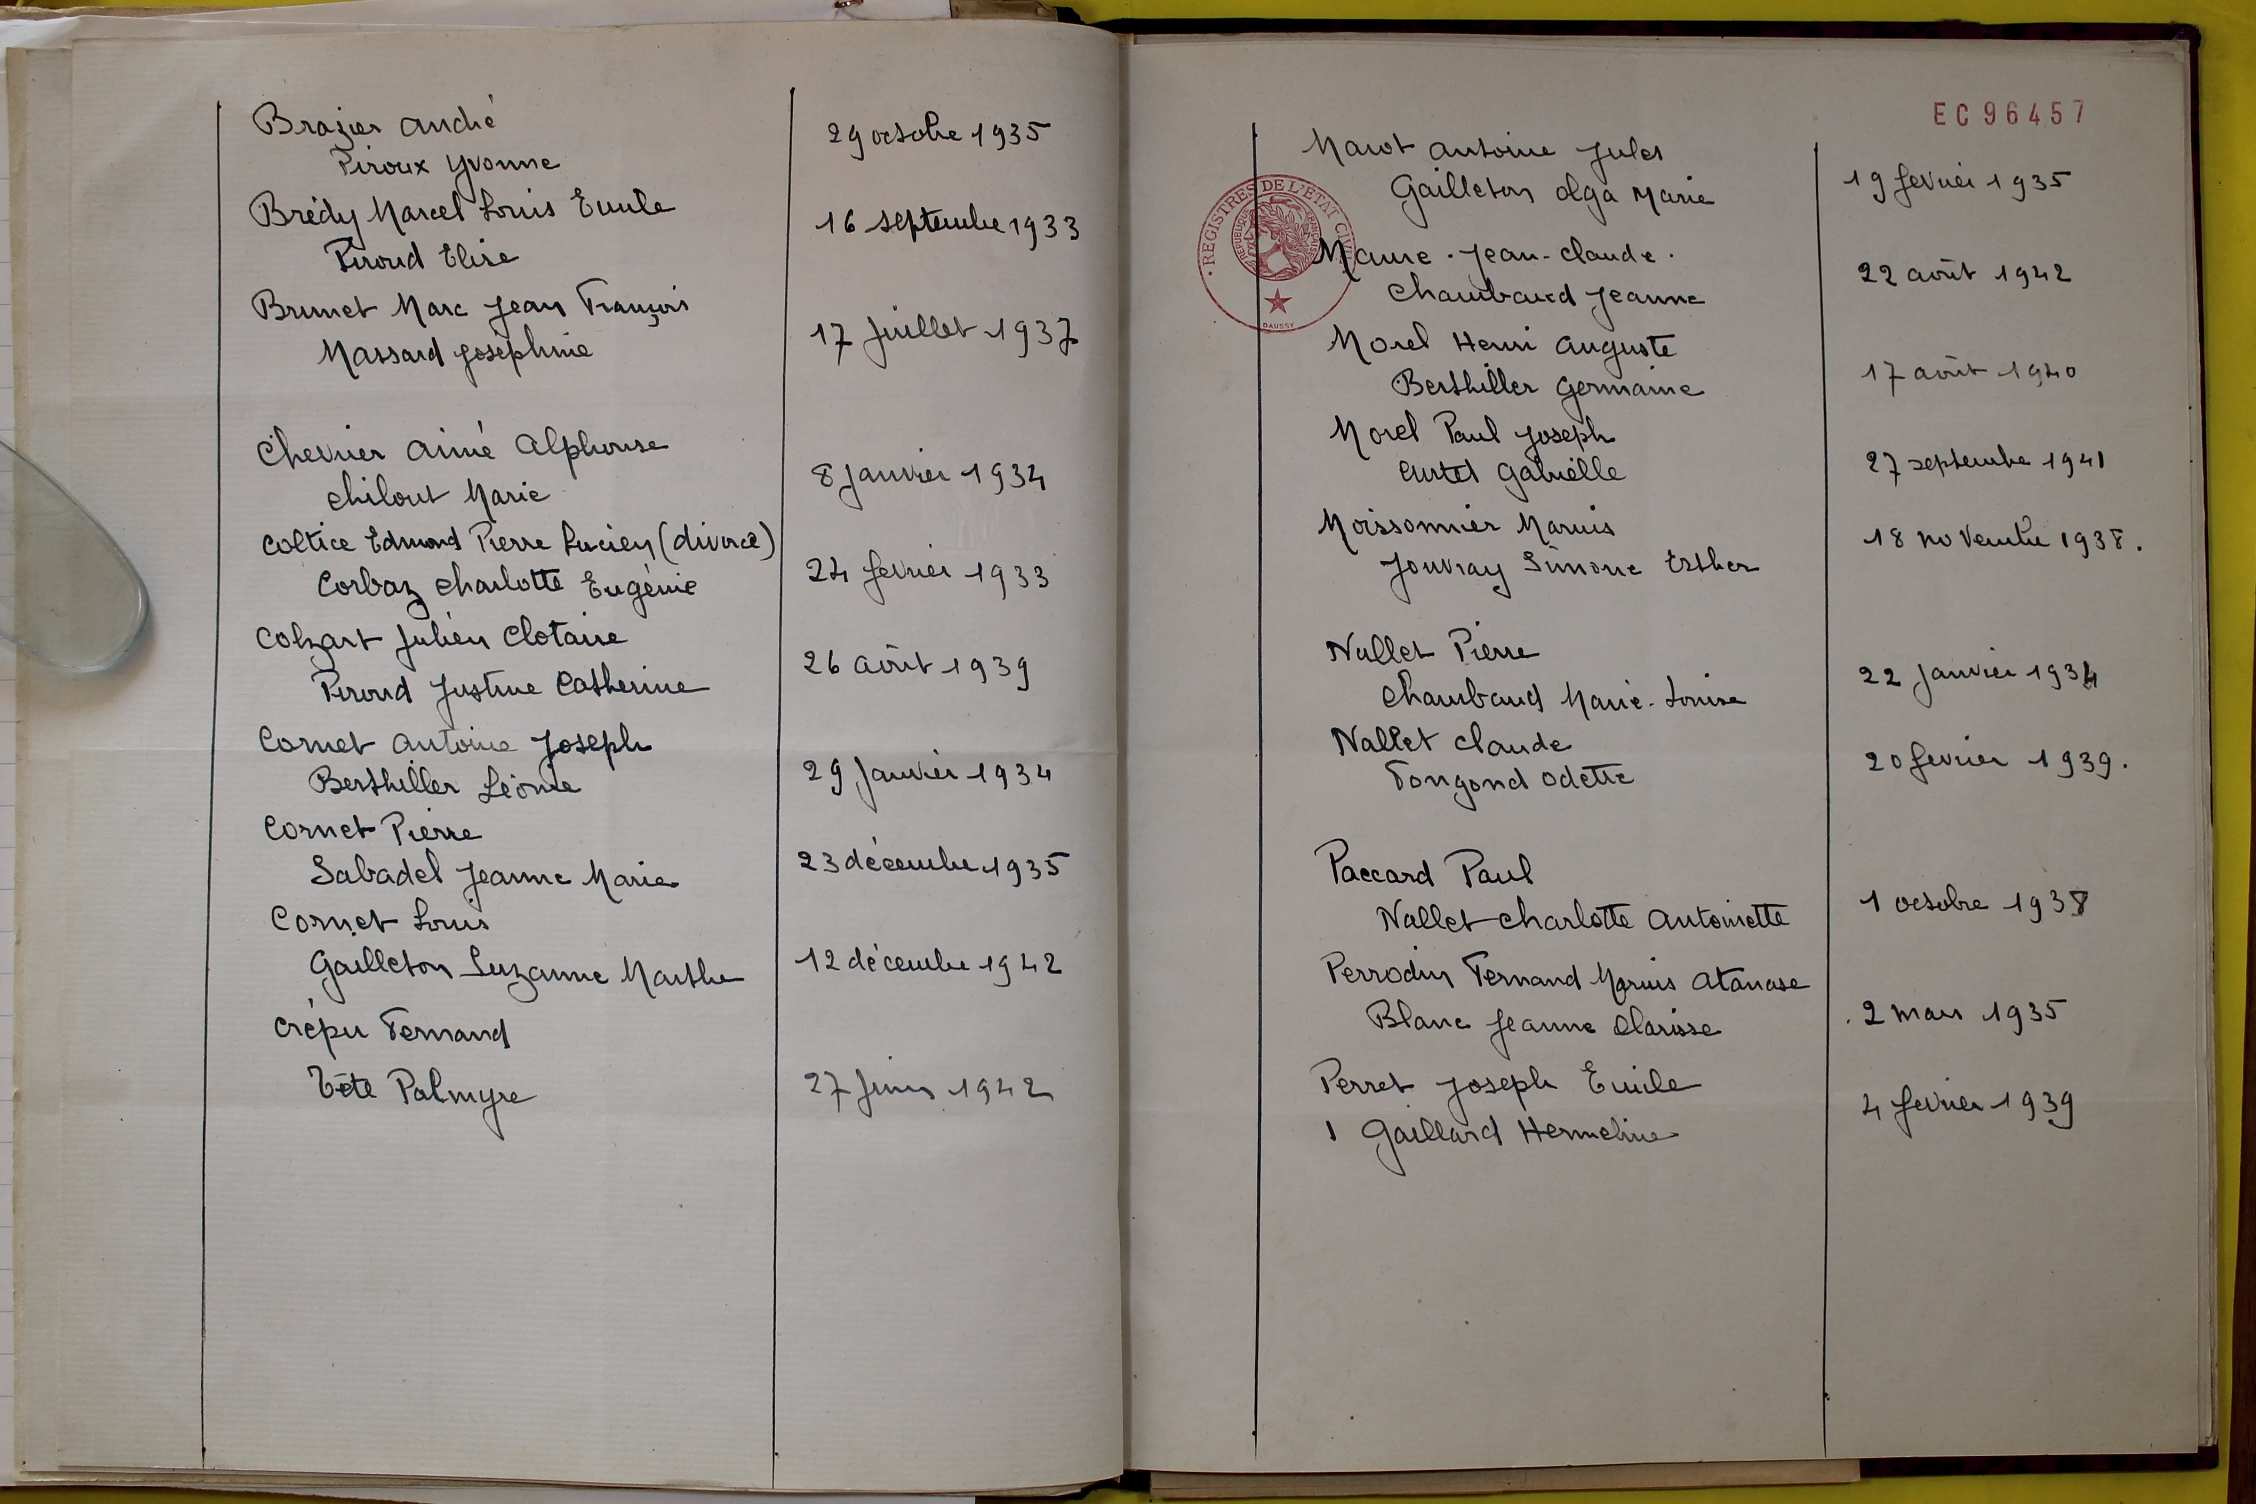 Brazier André
Piroux Yvonne
29 octobre 1935
Brédy Marcel Louis Emile
Piroud Elise
16 septembre 1933
Brunet Marc Jean François
Massard Joséphine
17 Juillet 1937
Chevrier Aimé Alphonse
Chilout Marie
8 Janvier 1934
Coltice Edmond Pierre Lucien (divorcé)
Corbaz Charlotte Eugénie
24 fevrier 1933
Colzart Julien Clotaire
Piroud Justine Catherine
26 août 1939
Cornet Antoine Joseph
Berthiller Léonie
29 Janvier 1934
Cornet Pierre
Sabadel Jeanne Marie
23 décembre 1935
Cornet Louis
Gailleton Suzanne Marthe
12 décembre 1942
Crépu Fernand
Tête Palmyre
27 Juin 1942
EC 96457
REGISTRES DE L'ETAT CIVIL
REPUBLIQUE FRANÇAISE
DAUSSY
Marot Antoine Jules
Gailleton Olga Marie
19 fevrier 1935
Maure . Jean-Claude .
Chambaud Jeanne
22 août 1942
Morel Henri Auguste
Berthiller Germaine
17 août 1940
Morel Paul Joseph
Curtet Gabriëlle
27 septembre 1941
Moissonnier Marius
Jouvray Simone Esther
18 novembre 1938.
Nallet Pierre
Chambaud Marie-Louise
22 Janvier 1934
Nallet Claude
Fongond Odette
20 fevrier 1939.
Paccard Paul
Nallet Charlotte Antoinette
1 octobre 1938
Perrodin Fernand Marius Atanase
Blanc Jeanne Clarisse
2 mars 1935
Perret Joseph Emile
Gaillard Hermeline
4 fevrier 1939